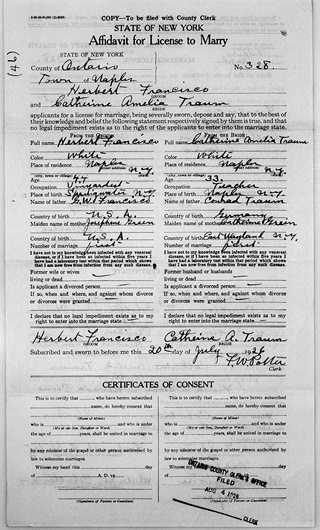 COPY—To be filed with County Clerk
STATE OF NEW YORK
Affidavit for License to Marry
(46)
STATE OF NEW YORK
County of Ontario
No. 328
Town of Naples
Herbert Francisco
and Catherine Amelia Traum
applicants for a license for marriage, being severally sworn, depose and say, that to the best of
their knowledge and belief the following statement respectively signed by them is true, and that
no legal impediment exists as to the right of the applicants to enter into the marriage state.
FROM THE GROOM
FROM THE BRIDE
Full name Herbert Francisco
Full name Catherine Amelia Traum
Color White
Color White
Place of residence Naples
Place of residence Naples
N-Y.
N-Y.
Age 47
Age 33
Occupation
Occupation Teacher
Place of birth Springwater N-Y
Place of birth Naples N-Y.
Name of father G.W. Francisco
Name of father Conrad Traum
Country of birth U.S.A.
Country of birth Germany
Maiden name Josephine Green
Maiden name Catherine Green
Country of birth U.S.A.
Country of birth East Wayland N-Y.
Number of marriage first
Number of marriage first
I have not to my knowledge been infected with any venereal
disease, or if I have been so infected within five years I
have had a laboratory test within that period which shows
that I am now free from infection from any such disease.
I have not to my knowledge been infected with any venereal
disease, or if I have been so infected within five years I
have had a laboratory test within that period which shows
that I am now free from infection from any such disease.
Former wife or wives
living or dead
Former husband or husbands
living or dead
Is applicant a divorced person
Is applicant a divorced person
If so, when and where, and against whom divorce
or divorces were granted
If so, when and where and against whom divorce
or divorces were granted
I declare that no legal impediment exists as to my
right to enter into the marriage state.
I declare that no legal impediment exists as to my
right to enter into the marriage state.
Herbert Francisco
Catherine A. Traum
GROOM
BRIDE
Subscribed and sworn to before me this 20th day of July 1926
Potter
Clerk
CERTIFICATES OF CONSENT
This is to certify that
who have hereto subscribed
name, do hereby consent that
(Name of Minor)
who is
and who is under
the age of years, shall be united in marriage to
by any minister of the gospel or other person authorized by
law to solemnize marriages.
Witness my hand this day
of A. D. 19
(Signatures of Parents or Guardian)
This is to certify that
who have hereto subscribed
name, do hereby consent that
(Name of Minor)
who is
and who is under
the age of years, shall be united in marriage to
by any minister of the gospel or other person authorized by
law to solemnize marriages.
Witness
of
(Signatures of Parents or Guardian)
ONTARIO COUNTY CLERK'S OFFICE
FILED
AUG 4 1926
CLERK